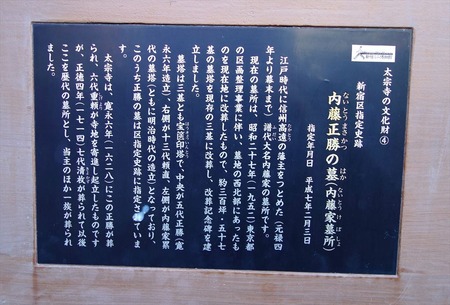 太宗寺の文化財 ④
新宿区指定史跡
ないとうまさかつ はか ないとうけぼしょ
内藤正勝の墓(内藤家墓所)
指定年月日 平成七年二月三日
江戸時代に信州高遠の藩主をつとめた(元禄四
年より幕末まで)譜代大名内藤家の墓所です。
現在の墓所は、昭和二十七年(一九五二)東京都
の区画整理事業に伴い、墓地の西北部にあったも
のを現在地に改葬したもので、約三百坪・五十七
基の墓塔を現存の三基に改葬し、改葬記念碑を建
立しました。
墓塔は三基とも宝篋印塔で、中央が五代正勝(寛
永六年造立)右側が十三代頼直、左側が内藤家累
代の墓塔(ともに明治時代の造立)となっており、
このうち正勝の墓は区指定史跡に指定されていま
す。
太宗寺は、寛永六年(一六二八)にこの正勝が葬
られ、六代重頼が寺地を寄進し起立したものです
が、正徳四年(一七一四)七代清枚が葬られて以後
ここを歴代の墓所とし、当主のほか一族が葬られ
ました。